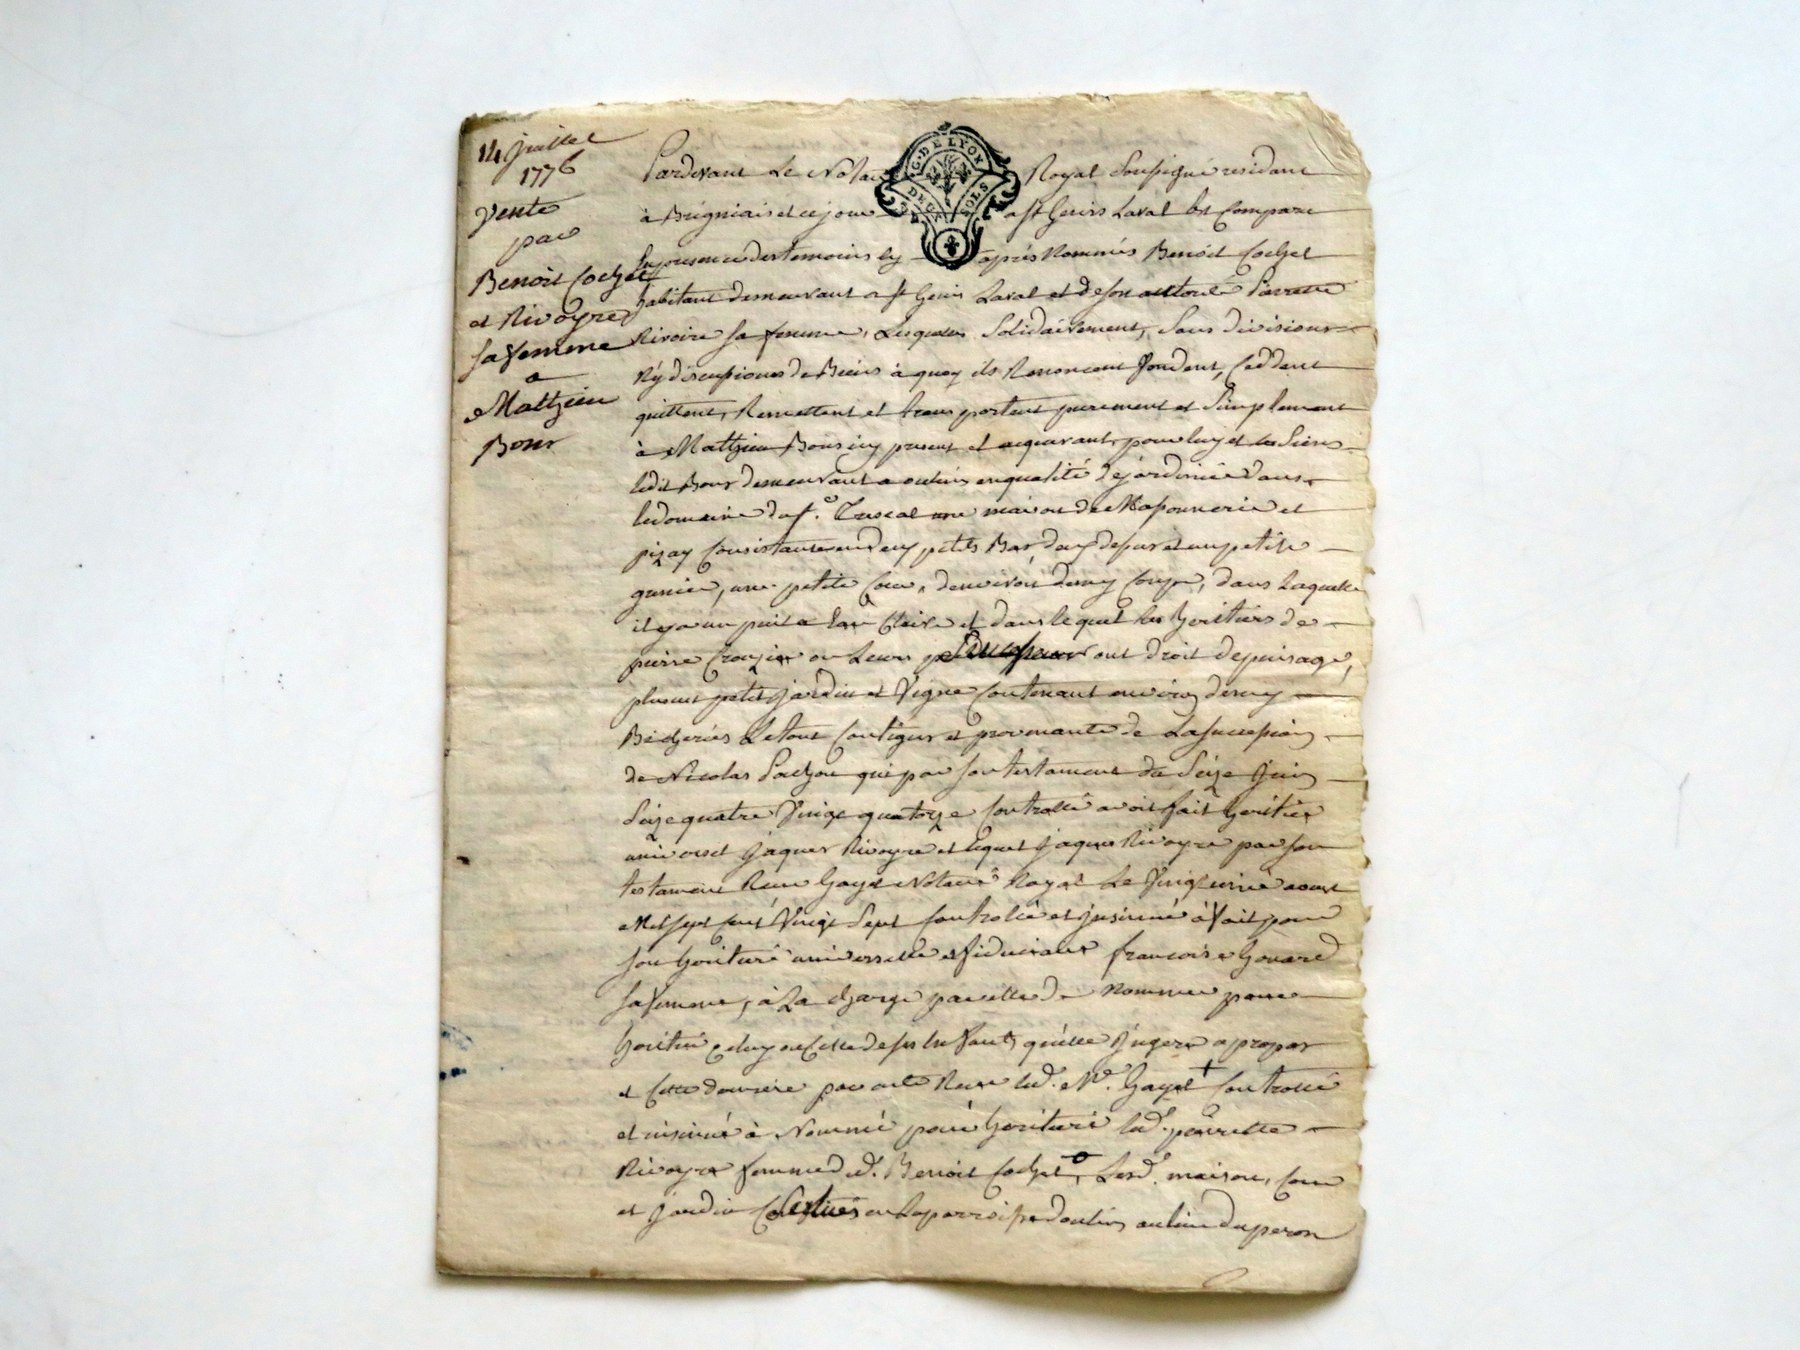 14 juillet
1776
Vente
par
Benoit Cochet
et Rivoyre
sa femme
a
Mathieu
Bour
G. DE LYON
DEUX SOLS
Pardevant Le Notaire Royal Soussigné residant
à Brigniais et ce jour a st Genis Laval est Comparu
En presence des temoins cy après Nommés Benoit Cochet
habitant demeurant a st Genis Laval et de son autorité Pierrette
Rivoire sa femme, Lesquels Solidairement, Sans division
Ny discussions de Biens à quoy ils Renoncent Vendent, Ceddent
quittent, Remettent et transportent purement et Simplement
à Mathieu Bour icy present et acquerant, pour luy et les Siens
ledit Bour demeurant a oulins en qualité de jardinier dans
le domaine du sr. une maison de Massonnerie et
pizay Consistante en deux petits Bas, deux dessus et un petit
grenier, une petite Cour, d'environ demy Coupe, dans Laquelle
il y a un puit a Eau Claire et dans lequel les heritiers de
pierre ou Leurs Successeurs ont droit de puisage,
plus un petit jardin et Vigne Contenant environ demy
Bicherées Le tout Contigus et provenante de La succession
de Nicolas Pachon qui par son testament du Seize Juin
Seize quatre Vingt quatorze Controllé avoit fait heritier
universel Jaques Rivoyre et lequel Jaques Rivoyre par son
testament Recu Gayet Notaire Royal Le Vingt aoust
Mil sept cent Vingt Sept Controllé et jnsinué à fait pour
son heritiere universelle et fiduciaire francoise Gouard
sa femme, à La charge par elle de Nommer pour
heritier Celuy ou Celle de ses enfants qu'elle jugera a propos
et Cette derniere par acte Recu led. Me. Gayet + Controllé
et insinué à Nommé pour heritiere lad. pierrette
Rivoyre femme dud. Benoit Cochet, Lesd. maison, Cour
et Jardin Scitués en La parroisse d'oulins au lieu du peron